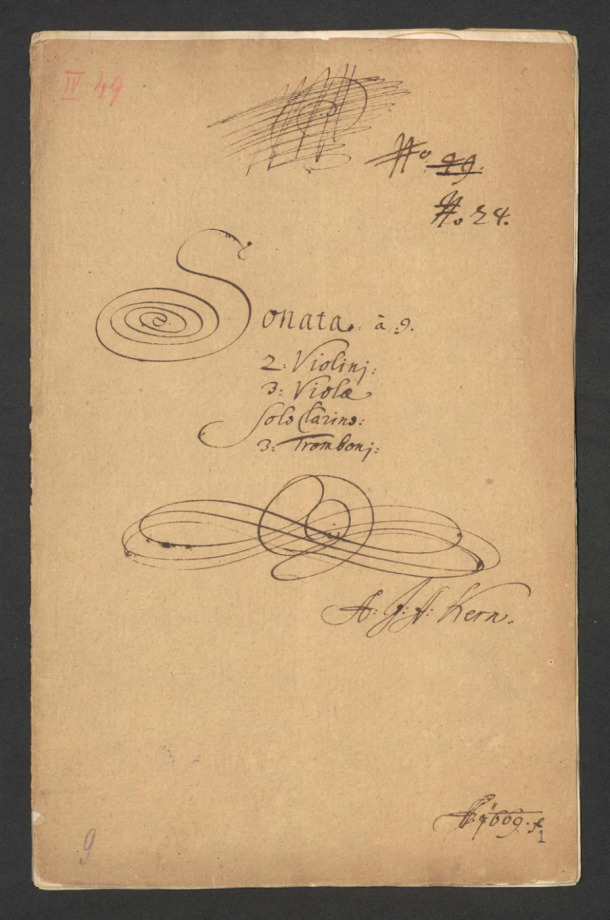 IV. 49
No. 49.
No. 24.
Sonata. à .9.
2: Violinj:
3: Violæ
Solo Clarino:
3: Trombonj:
A: J: A: Kern.
1
9